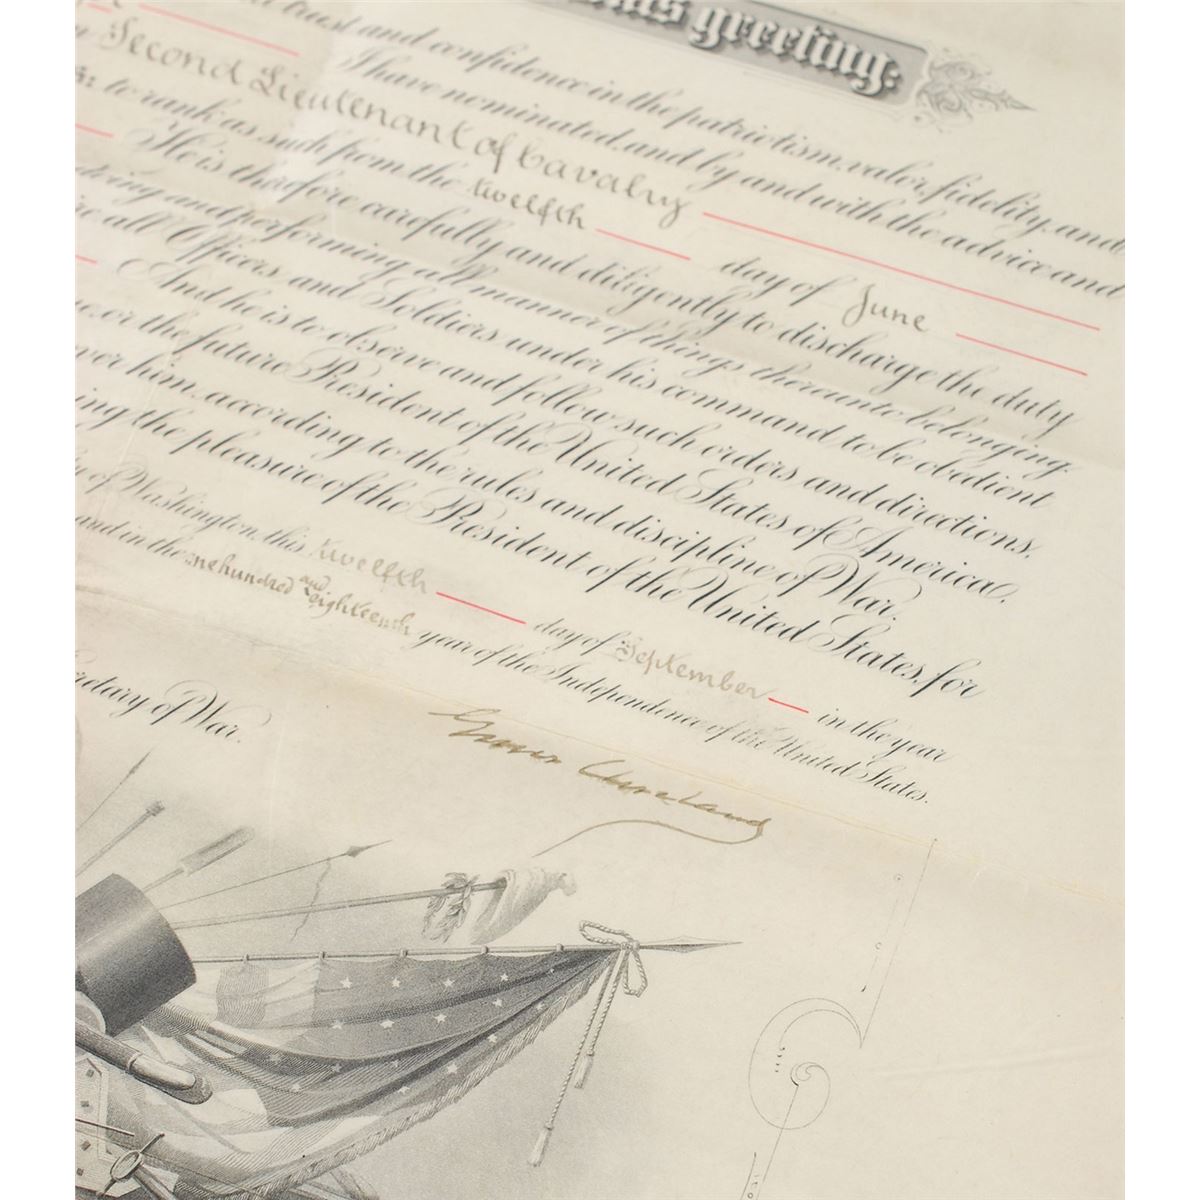 greeting:
trust and confidence in the patriotism, valor, fidelity, and
I have nominated, and by and with the advice and
Second Lieutenant of Cavalry
to rank as such from the twelfth day of June
He is therefore carefully and diligently to discharge the duty
and performing all manner of things thereunto belonging.
all Officers and Soldiers under his command to be obedient
And he is to observe and follow such orders and directions,
or the future President of the United States of America,
him, according to the rules and discipline of War.
the pleasure of the President of the United States, for
of Washington, this twelfth day of September in the year
and in the one hundred and eighteenth year of the Independence of the United States.
Grover Cleveland
of War.